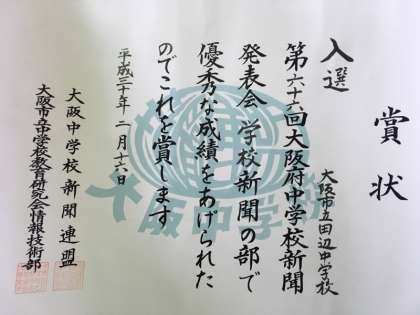 賞状
入選
大阪市立田辺中学校
第六十六回大阪府中学校新聞
発表会 学校新聞の部で
優秀な成績をあげられた
のでこれを賞します
平成三十年一月十六日
大阪中学校新聞連盟
大阪市立中学校教育研究会情報技術部